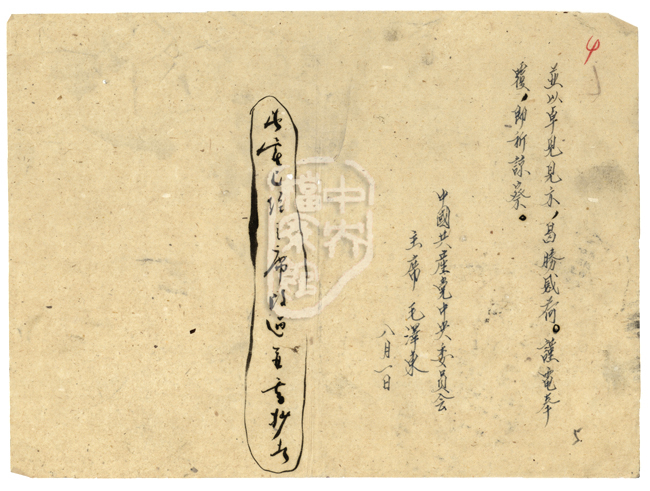 4
並以卓見見示,曷勝感荷。謹電奉
覆,即祈諒察。
中國共產黨中央委員會
主席 毛澤東
八月一日
此 已經主席改過
5
中央
檔案館